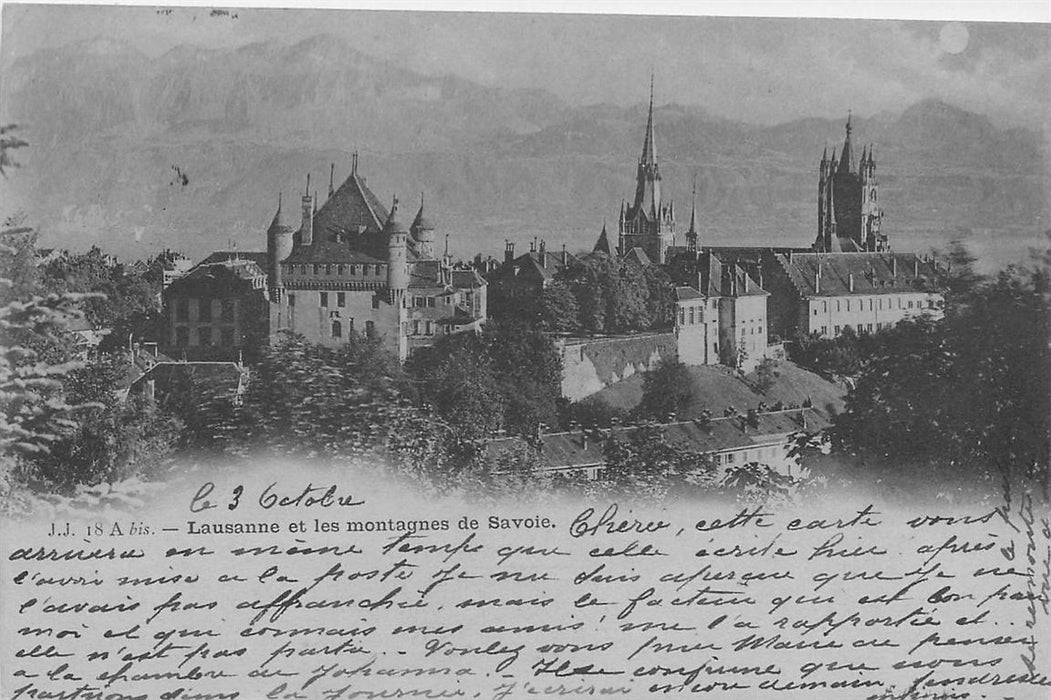 le 3 Octobre
J.J. 18 A bis. — Lausanne et les montagnes de Savoie.
Chérie, cette carte vous
arrivera en même temps que celle écrite hier après
l'avoir mise a la poste je me suis aperçue que je ne
l'avais pas affranchie, mais le facteur qui est bon pour
moi et qui connais mes amis! me l'a rapportée et..
elle n'est pas partie. - Voulez vous prier Marie de penser
a la chambre de Johanna. - Il se confirme que nous
partirons dans la journée, j'écrirai encore demain, tendresse